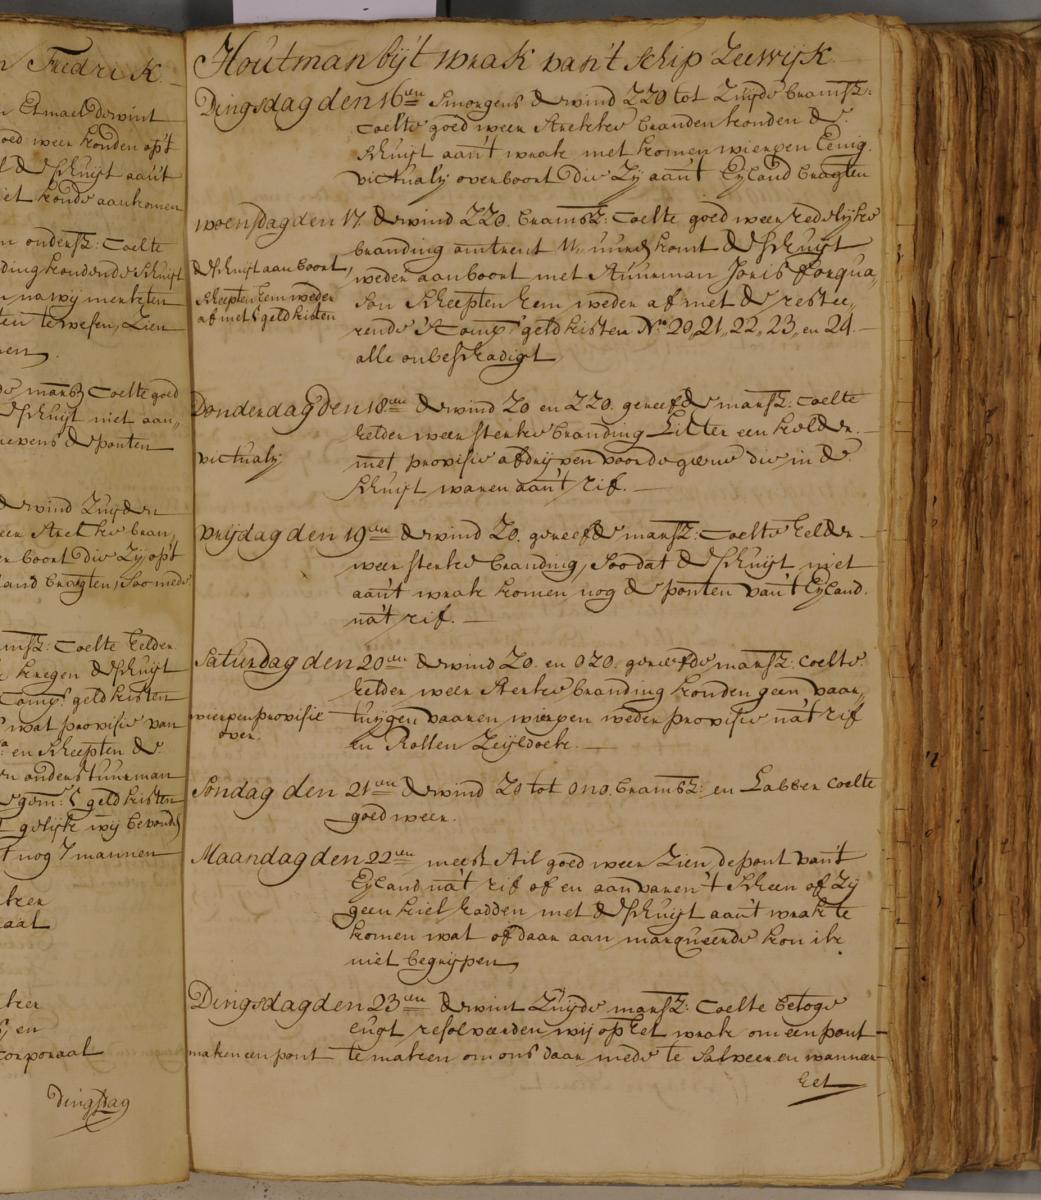 n Fredrik
n Etmael de wint
oed weer konden op't
l de schuijt aan't
iet konde aankomen
n ondersz: Coelte
ding konde de schuijt
n na wij merkten
ten te wesen, Zien
nen
de marsz Coelte goed
de schuijt niet aan„
nevens de ponten
de wind Zuijden
een sterke bran„
er boort die Zij op't
land bragten, soo mede
amsz: Coelte helder
kregen de schuijt
Comps geldkisten
wat provisie van
en scheepten de
en onderstuurman
geldkisten
t gelijk wij bevonde
t nog 7 mannen
aal
en
Corporaal
Dingsdag
Houtman bij't wrak van't schip Zeewijk
Dingsdag den 16en Smorgens de wind ZZO tot Zuijde bramsz:
Coelte goed weer sterke branden konden de
schuijt aan't wrak niet komen wierpen Eenig
victualij overboort die Zij aan't Eyland bragten
woensdag den 17. de wind ZZO. bramsz: Coelte goed weer redelijke
branding omtrent 11 uure komt de schuijt
de schuijt aan boort,
weder aan boort met stuurman Joris forqua„
scheepten hem weder
son scheepten hem weder af met de restee„
af met 5 geldkisten
rende 's Comps geldkisten No 20, 21, 22, 23, en 24
alle onbeschadigt
Donderdag den 18en de wind ZO en ZZO. gereefde marsz: Coelte
helder weer sterke branding Lieten een kelder
victualij
met provisie afdrijven voor de geene die in de
schuijt waren aan't rif.
vrijdag den 19en de wind ZO. gereefde marsz: Coelte helder
weer sterke branding, soo dat de schuijt niet
aan't wrak komen nog de ponten van't Eyland
na't rif.
Saturdag den 20en de wind ZO. en OZO. gereefde marsz: Coelte
helder weer sterke branding konden geen vaar„
wierpen provisie
tuijgen vaaren wierpen weder provisie na't rif
over.
en Rollen Zeijldoek.
Sondag den 21en de wind ZO tot ONO. bramsz: en Labber Coelte
goed weer.
Maandag den 22en meest stil goed weer Zien de pont van't
Eyland na't rif af en aan varen 't scheen of Zij
geen hiel hadden met de schuijt aan't wrak te
komen wat of daar aan manqueerde kon ik
niet begrijpen
Dingsdag den 23en de wint Zuijde marsz: Coelte betoge
lugt resolveerden wij op het wrak om een pont
maken een pont
te maken om ons daar mede te salveeren wanneer
het